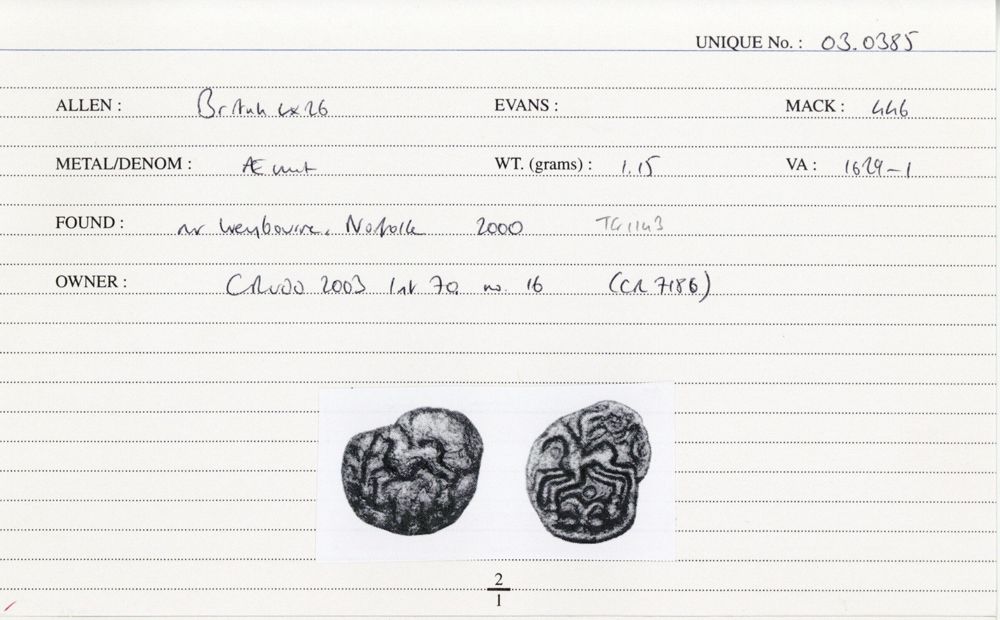 UNIQUE No. : 03.0385
ALLEN : British Lx 26 EVANS : MACK : 446
METAL/DENOM : Æ unit WT. (grams) : 1.15 VA : 1629-1
FOUND : nr Weybourne, Norfolk 2000 TG 1143
OWNER : CR 2003 list 70 no. 16 (CR 7186)
2
1